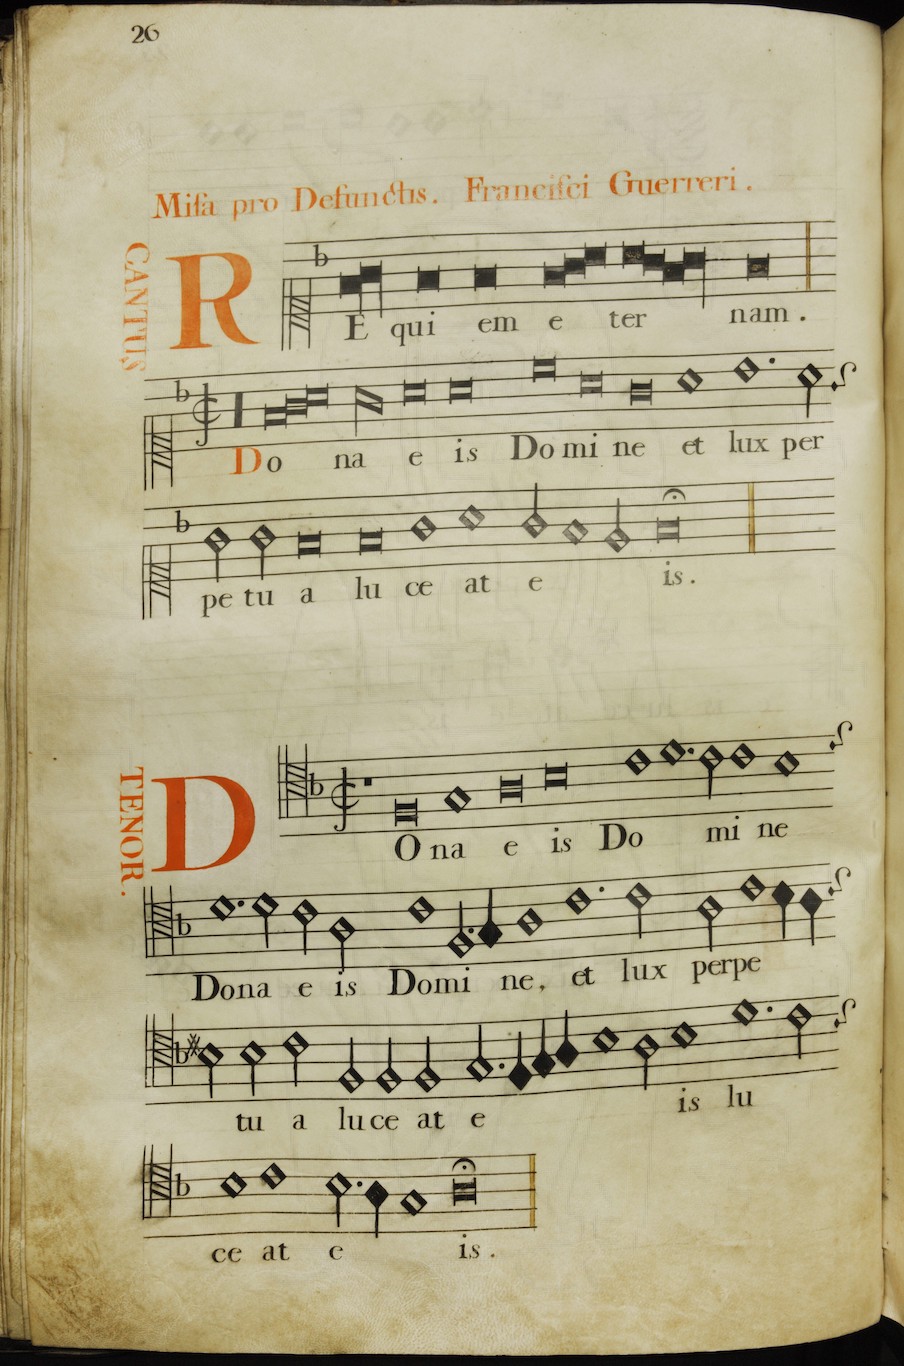 26
Missa pro Defunctis. Francisci Guerreri.
CANTUS
REqui em e ter nam.
Do na e is Domi ne et lux per
petu a lu ce at e is.
TENOR.
DOna e is Do mi ne
Dona e is Domi ne, et lux perpe
tu a luce at e is lu
ce at e is.